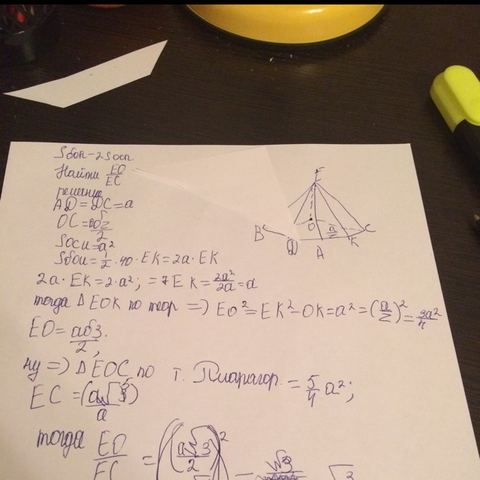 Sбок=2Sосн
Найти EO/EC
решение
AD=DC=a
OC=a√2/2
Sосн=a²
Sбок=1/2·4a·EK=2a·EK
2a·EK=2·a²; => EK=2a²/2a=a
тогда △EOK по теор => EO²=EK²-OK=a²=(a/2)²=3a²/4
EO=a√3/2;
ну => △EOC по т. Пиарагор =5/4 a²;
EC=(a√5)/a
тогда EO/EC =((a√3/2)²) = √3
E
B
O
C
D
A
K
a/2